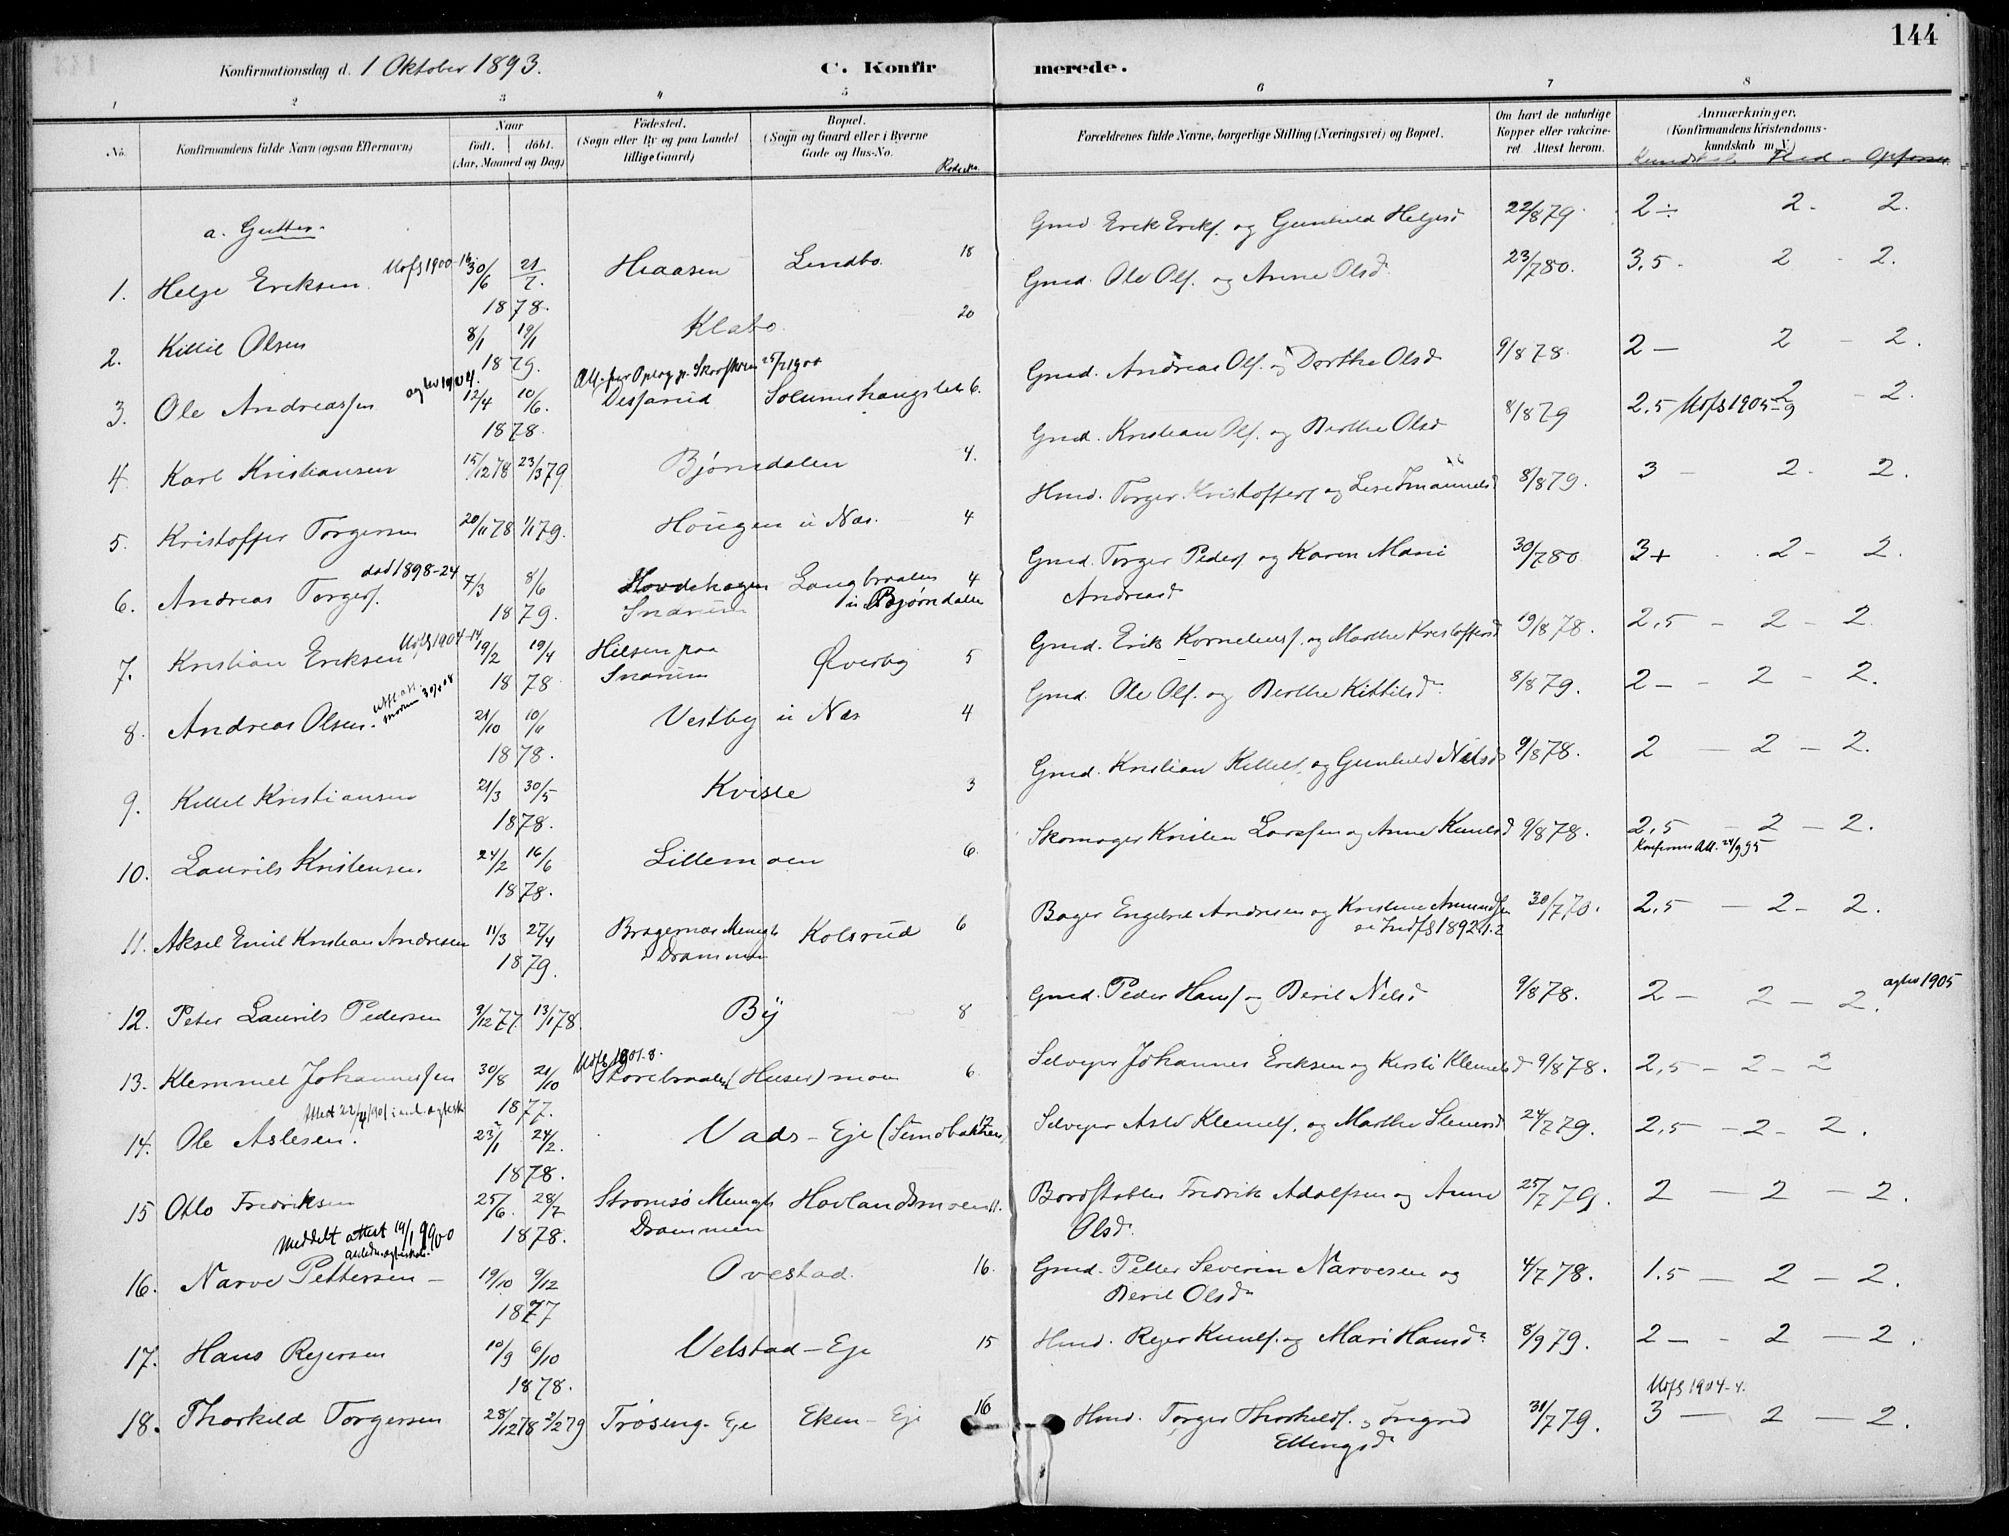 144
Konfirmationsdag d. 1 Oktober 1893.
C. Konfirmerede.
1 2 3 4 5 6 7 8
No.
Konfirmandens fulde Navn (ogsaa Efternavn)
Naar
födt. döbt.
(Aar, Maaned og Dag)
Födested.
(Sogn eller By og paa Landet
tillige Gaard)
Bopæl.
(Sogn og Gaard eller i Byerne
Gade og Hus-No.
Rode No.
Forældrenes fulde Navne, borgerlige Stilling (Næringsvei) og Bopæl.
Om havt de naturlige
Kopper eller vakcine-
ret. Attest herom.
Anmærkninger.
(Konfirmandens Kristendoms-
kundskab m. V.)
Kundskab Flid Opførsel
a. Gutter.
1. Helge Eriksen. 30/6 21/7 1878. Haasen Lindbo 18 Gmd. Erik Eriks. og Gunhild Helgesd 22/879. 2÷ 2 - 2.
2. Kittil Olsen 8/1 19/1 1879. Klabo. 20 Gmd. Ole Ols. og Anne Olsd. 23/780. 3,5 - 2 - 2.
agtev 1904.
3. Ole Andreassen 12/4 10/6. 1878. Desserud Solumshaugslet 6. Gmd. Andreas Ols. og Dorthe Olsd 9/878. 2 — 2 - 2.
4. Karl Kristiansen 15/1278 23/379 Bjørndalen 4. Gmd. Kristian Ols. og Berthe Olsd 8/879 2,5 Utfl 1905-9 2 - 2.
5. Kristoffer Torgersen 20/1178 1/179. Haugen u Næs. 4 Hmd. Torger Kristoffers og Lise Imanuelsd 8/879. 3 - 2 - 2.
død 1898-24
6. Andreas Torgers. 7/3 8/6 1879. Hovdehagen Snarum Langbraaten u Bjørndalen 4 Gmd. Torger Peders og Karen Marie Andreasd 30/780 3+ 2 - 2.
Utfl 1904-14
7. Kristian Eriksen 19/2 19/4 1878 Hilsen paa Snarum Øverby 5 Gmd. Erik Kornelius. og Marthe Kristoffersd 19/878. 2,5 - 2 - 2
8. Andreas Olsen. 21/10 10/11 1878. Vestby u Næs 4 Gmd. Ole Ols. og Berthe Kittilsd 8/879. 2 - 2 - 2.
9. Kittil Kristiansen 21/3 30/5 1878. Kvisle 3 Gmd. Kristian Kittils. og Gunhild Nilsd 9/878. 2 — 2 — 2.
10. Laurits Kristensen. 24/2 16/6 1878. Lillemoen 6. Skomager Kristen Larssen og Anne Knutsd 9/878. 2,5 - 2 - 2.
Konfirms Att. 24/9 95
11. Aksel Emil Kristian Andresen 11/3 27/4 1879. Bragernæs Menigh Drammen Kolsrud 6 Bager Engebret Andresen og Kristine Amundsen 30/770. 2,5 — 2 - 2.
se Indfl 1892 1.2
12. Peter Laurits Pedersen 9/1277. 13/178. By 8 Gmd. Peder Hans. og Berit Nilsd 9/878. 2 — 2 — 2.
agtev 1905
Utfl 1901-8.
13. Klemmet Johannessen 30/8 21/10 1877. Storebraaten (Huser) moen 6. Selveier Johannes Eriksen og Kersti Klemetsd 9/878. 2,5 - 2 - 2
14. Ole Aslesen. 23/1 24/2. 1878. Vads - Eje (Simobakken) 12 Selveier Asle Klemets. og Marthe Stenersd 24/779. 2,5 - 2 - 2.
15 Otto Fredriksen 25/6. 28/7 1878. Strømsø Menigh Drammen Hovlandsmoen 11. Bordstabler Fredrik Adolfsen og Anne Olsd. 25/779. 2 — 2 — 2.
Meddelt attest 19/1 1900
16. Narve Pettersen - 19/10 9/12 1877 Ovestad. 16. Gmd. Petter Severin Narvesen og Berit Olsd. 4/778. 1,5 — 2 — 2.
17. Hans Reiersen 10/9 6/10 1878. Velstad - Eje 15 Hmd. Reier Knuts. og Mari Hansd. 8/979. 2 — 2 — 2.
Utfl 1904-4.
18. Thorkild Torgersen 28/1278 2/279 Trøseng - Eje Eken - Eje 16 Hmd. Torger Thorkilds. og Ingrid Ellingsd 31/779. 3 — 2 — 2.